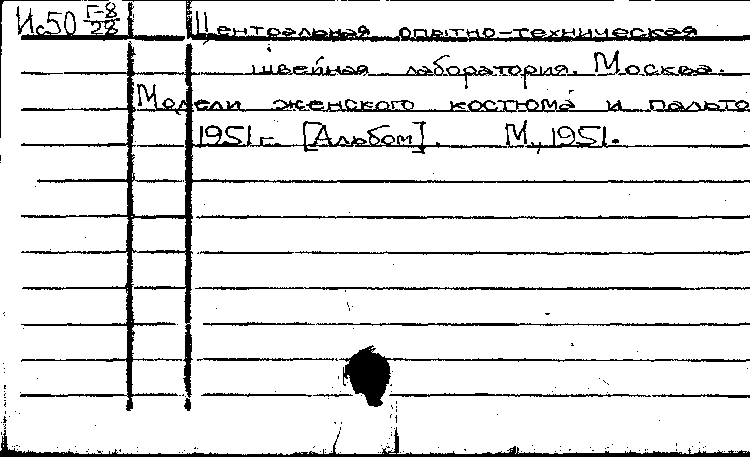 Ис50 Г-8/28 Центральная опытно-техническая
швейная лаборатория. Москва.
Модели женского костюма и пальто
1951 г. [Альбом]. М., 1951.